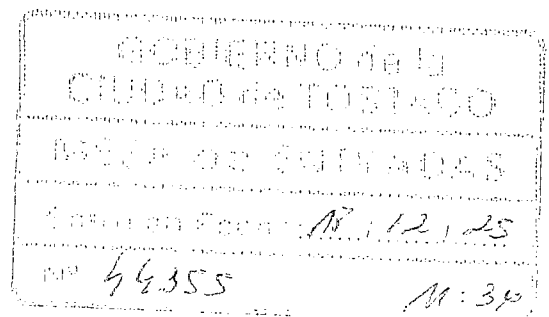 GOBIERNO de la
CIUDAD de TOSTADO
MESA DE ENTRADAS
Fecha: 18 / 12 / 25
Nº 44355 11:30